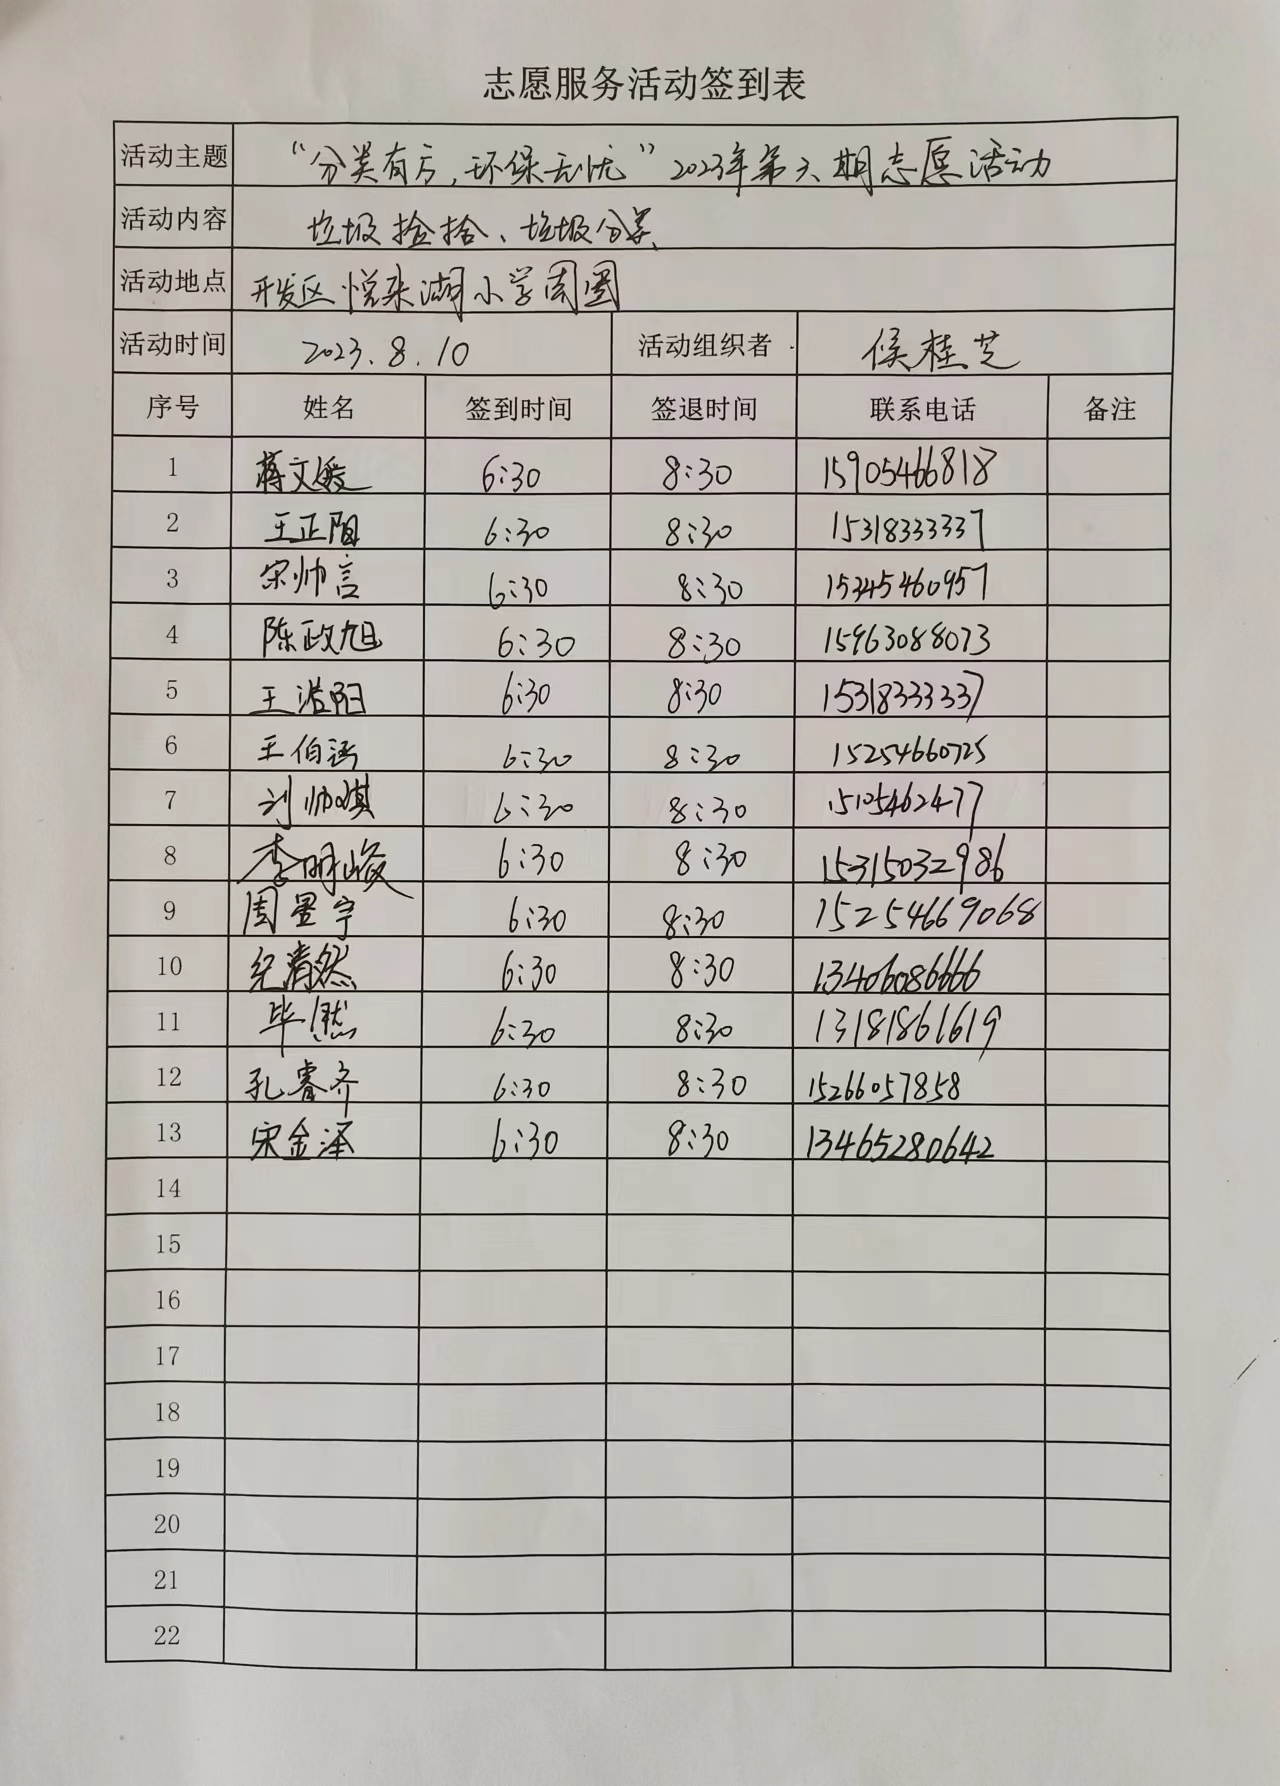 志愿服务活动签到表
活动主题 “分类有方,环保无忧”2023年第六期志愿活动
活动内容 垃圾捡拾、垃圾分类
活动地点 开发区悦来湖小学周围
活动时间 2023.8.10 活动组织者 侯桂芝
序号 姓名 签到时间 签退时间 联系电话 备注
1 蒋文媛 6:30 8:30 15905466818
2 王正阳 6:30 8:30 15318333337
3 宋帅言 6:30 8:30 15345460957
4 陈政旭 6:30 8:30 15963088073
5 王浩阳 6:30 8:30 15318333337
6 王伯涵 6:30 8:30 15254660725
7 刘帅琪 6:30 8:30 15105462477
8 李明峻 6:30 8:30 15315032986
9 周墨宇 6:30 8:30 15254669068
10 纪清然 6:30 8:30 13406086666
11 毕 6:30 8:30 13181861619
12 孔睿齐 6:30 8:30 15266057858
13 宋金泽 6:30 8:30 13465280642
14
15
16
17
18
19
20
21
22